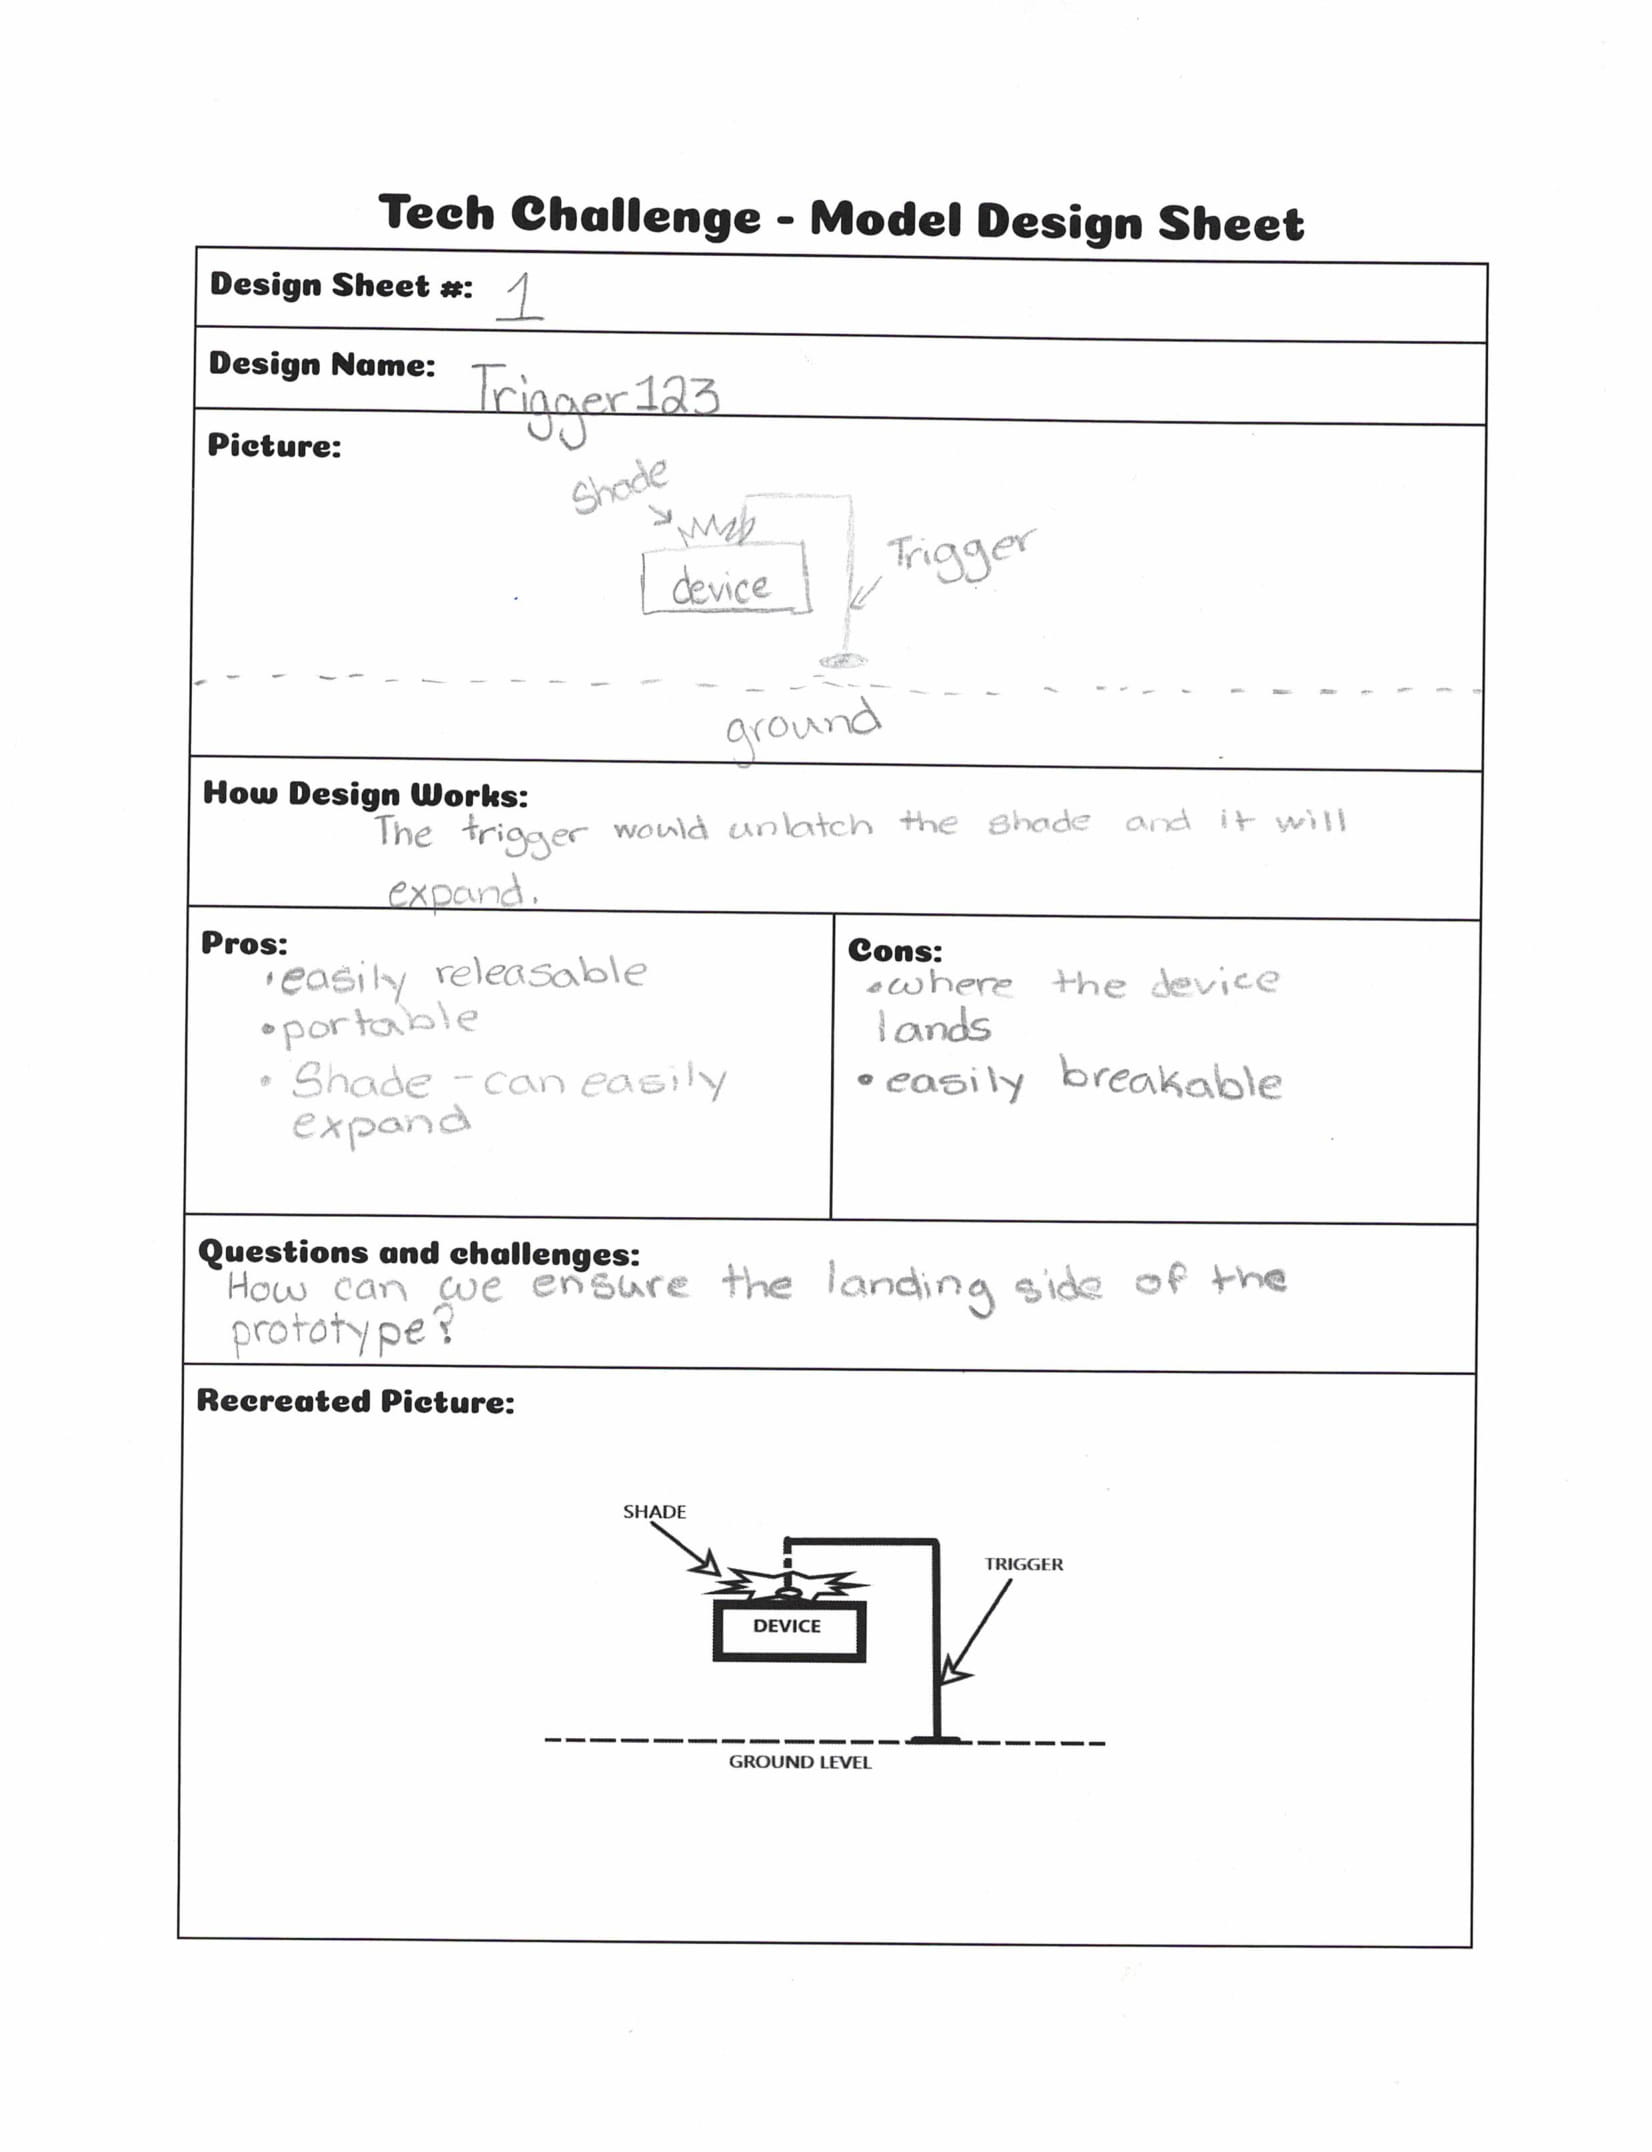 Tech Challenge - Model Design Sheet
Design Sheet #: 1
Design Name: Trigger123
Picture:
Shade
Trigger
device
ground
How Design Works:
The trigger would unlatch the shade and it will
expand.
Pros:
• easily releasable
• portable
• Shade - can easily
expand
Cons:
• where the device
lands
• easily breakable
Questions and challenges:
How can we ensure the landing side of the
prototype?
Recreated Picture:
SHADE
TRIGGER
DEVICE
GROUND LEVEL